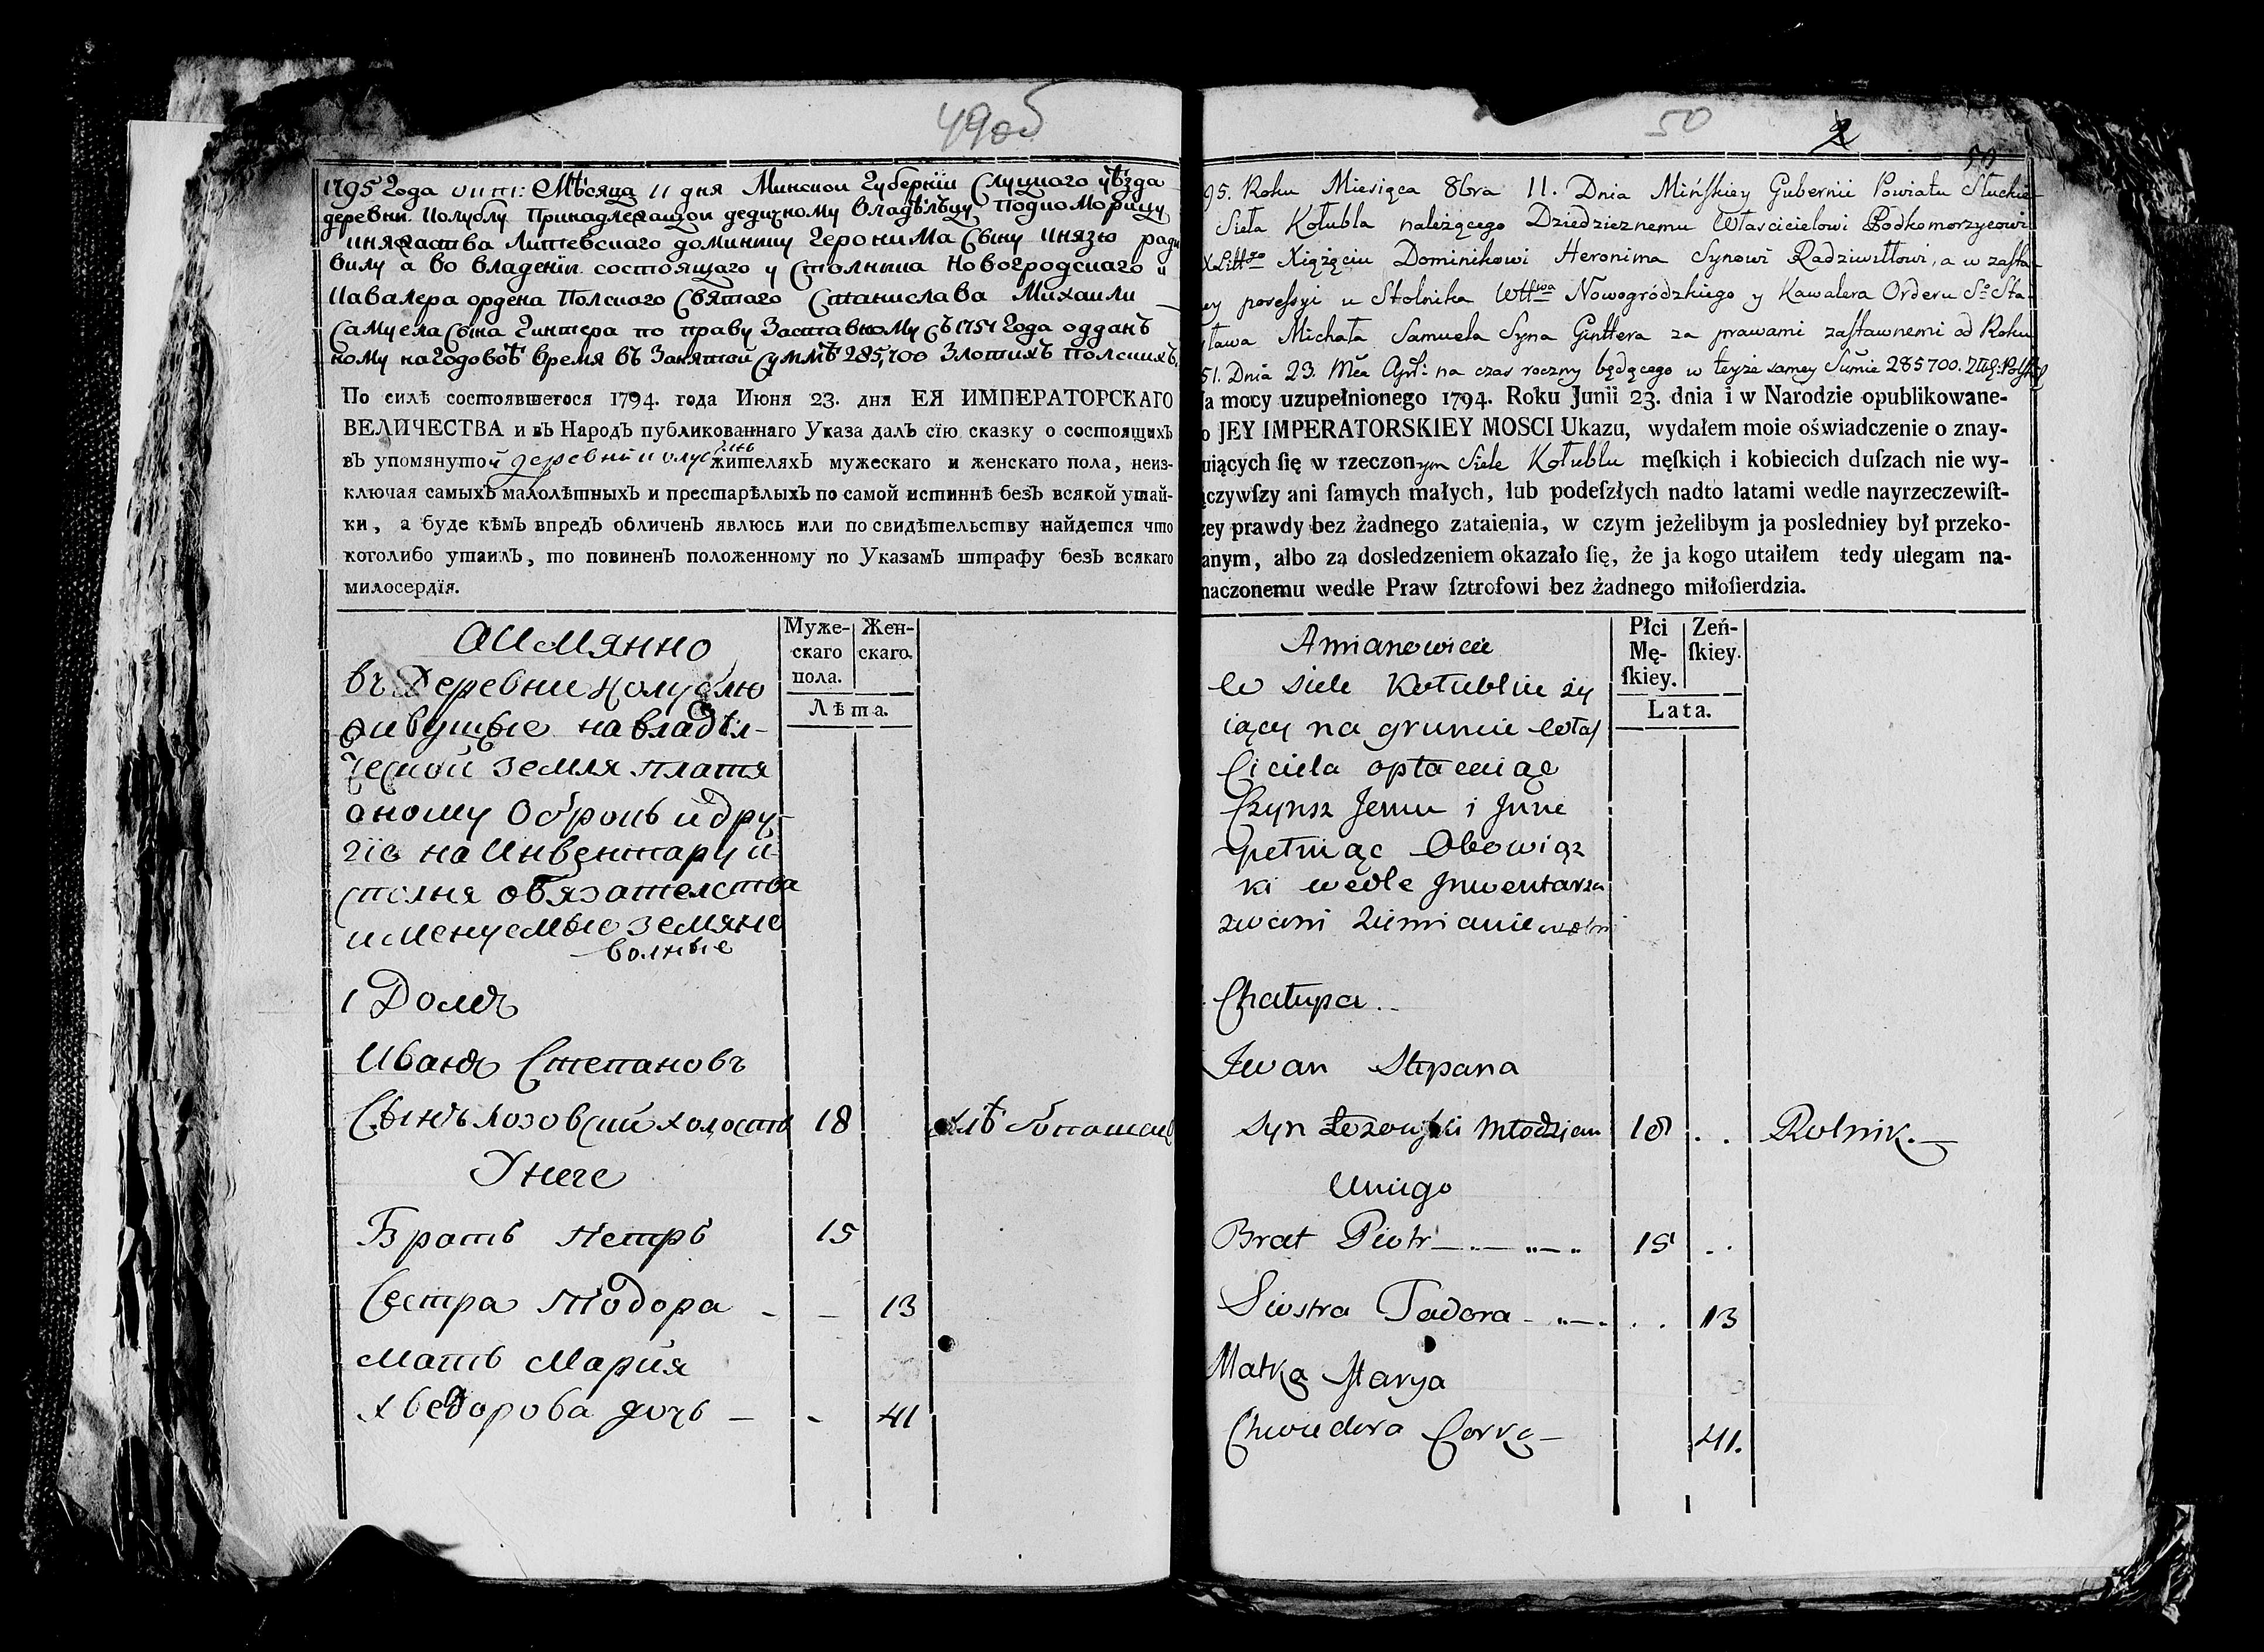 49об
1795 Года Окт: Мѣсяца 11 дня Минской Губернїи Слуцкаго уѣзда
деревни Колублу Принадлежащой дедичному владѣльцу Подкоморицу
княжества Литевскаго доминику Геронима Сыну князю ради
вилу а во владенїи состоящаго у Столника Новогродскаго и
Кавалера ордена Полскаго Святаго Станислава Михаили
Самуела Сына Гинтера по праву Заставному съ 1751 Года оддан
ному на Годовоѣ время въ Занятой суммѣ 285,700 Злотихъ полскихъ.
По силѣ состоявшегося 1794. года Июня 23. дня ЕЯ ИМПЕРАТОРСКАГО
ВЕЛИЧЕСТВА и въ Народъ публикованнаго Указа далъ сїю сказку о состоящихъ
въ упомянутой деревни жителяхъ мужескаго и женскаго пола, неиз-
ключая самыхъ малолѣтныхъ и престарѣлыхъ по самой истиннѣ безъ всякой утай-
ки, а буде кѣмъ впредъ обличенъ явлюсь или по свидѣтельству найдется что
коголибо утаилъ, то повиненъ положенному по Указамъ штрафу безъ всякаго
милосердїя.
Муже-
скаго
пола.
Жен-
скаго.
Лѣта.
Аимянно
въ Деревни Колублю
живущые на владѣл-
ческой земля платя
оному Оброкъ и дру-
гїе на Инвентару и
сполня обязателства
именуемые земяне
волные
1 Домъ
Иванъ Степановъ
Сынъ Лозовский холостъ 18 хлѣбопашецъ
У неге
Братъ Петръ 15
Сестра Тодора - - 13
Мать Мария
Хведорова дочь - - 41
50
2
50
95. Roku Miesiąca 8bra 11. Dnia Mińskiey Gubernii Powiatu Słuckie
Sieła Kołubla należącego Dziedzicznemu Własciciełowi Podkomorzycowi
XLittgo Xiążęciu Dominikowi Heronima Synowi Radziwiłłowi, a w zasta
ey possessyi u Stolnika Wttwa Nowogródzkiego y Kawalera Orderu So Sta-
sława Michała Samuela Syna Gintera za prawami zastawnemi od Roku
51. Dnia 23. Mca Apr: na czas roczny będącego w teyże samey Sumie 285700. Złł: Polsk
a mocy uzupełnionego 1794. Roku Junii 23. dnia i w Narodzie opublikowane-
o JEY IMPERATORSKIEY MOSCI Ukazu, wydałem moie oświadczenie o znay-
uiących ſię w rzeczonym Siele Kołublu męſkich i kobiecich duſzach nie wy-
ączywſzy ani ſamych małych, lub podeſzłych nadto latami wedle nayrzeczewiſt-
zey prawdy bez żadnego zataienia, w czym jeżelibym ja posledniey był przeko-
anym, albo za dosledzeniem okazało ſię, że ja kogo utaiłem tedy ulegam na-
naczonemu wedle Praw ſztrofowi bez żadnego miłoſierdzia.
Płci
Mę-
ſkiey.
Zeń-
ſkiey.
Lata.
Amianowicie
w Siele Kołublu ży
iący na gruncie Włas
Ciciela opłacaiąc
Czynsz Jemu i Jnne
pełniąc Obowiąz
ki wedle Jnwentarza
zwani Ziemianie wolni
Chałupa.
Jwan Stepana
syn Łozowski Młodzian 18 . . Rolnik.
Uniego
Brat Piotr 15 . .
Siostra Tadora . . 13
Matka Marya
Chwiedora Corka 41.